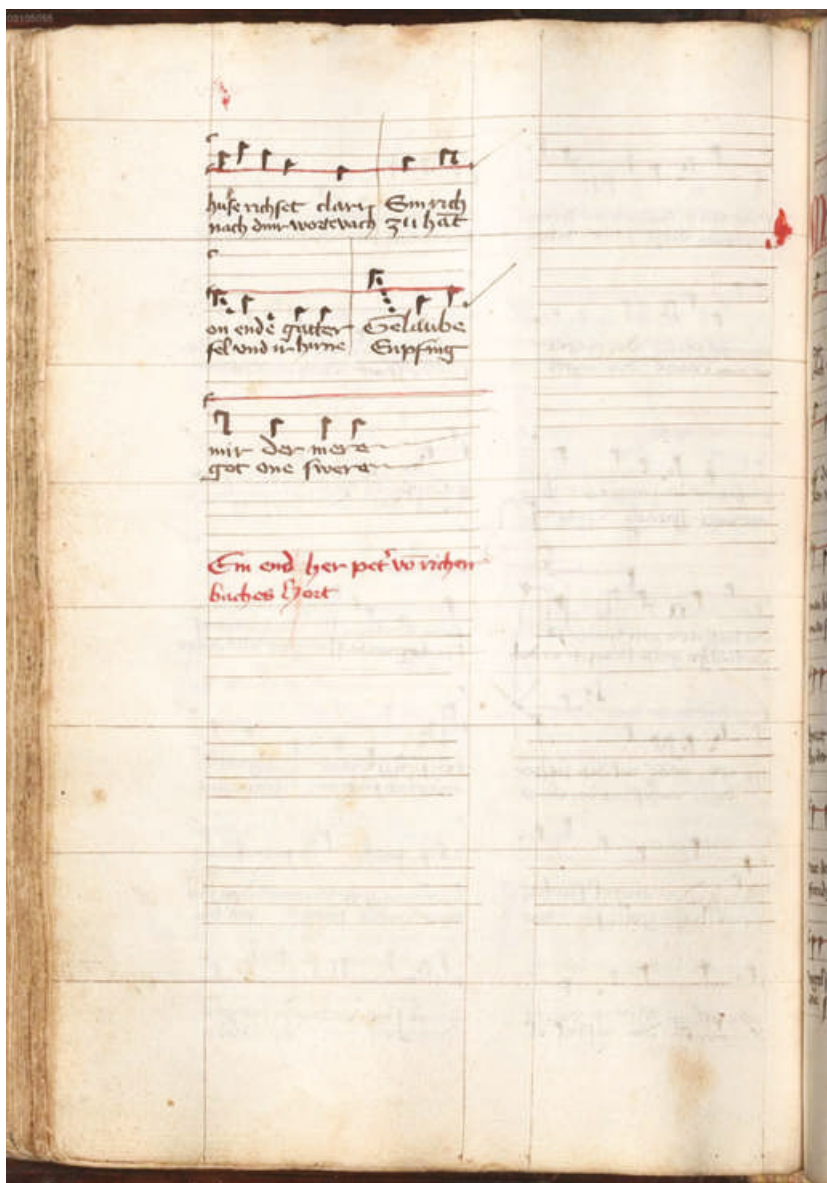 00105055
huse richset clari Sin rich
nach dinr worte wach zu hat
on ende gutter Gelaube
sel und ir hirne Enpfing
mir der mere
got one swere
Ein end her pet' vō richen
baches Hort